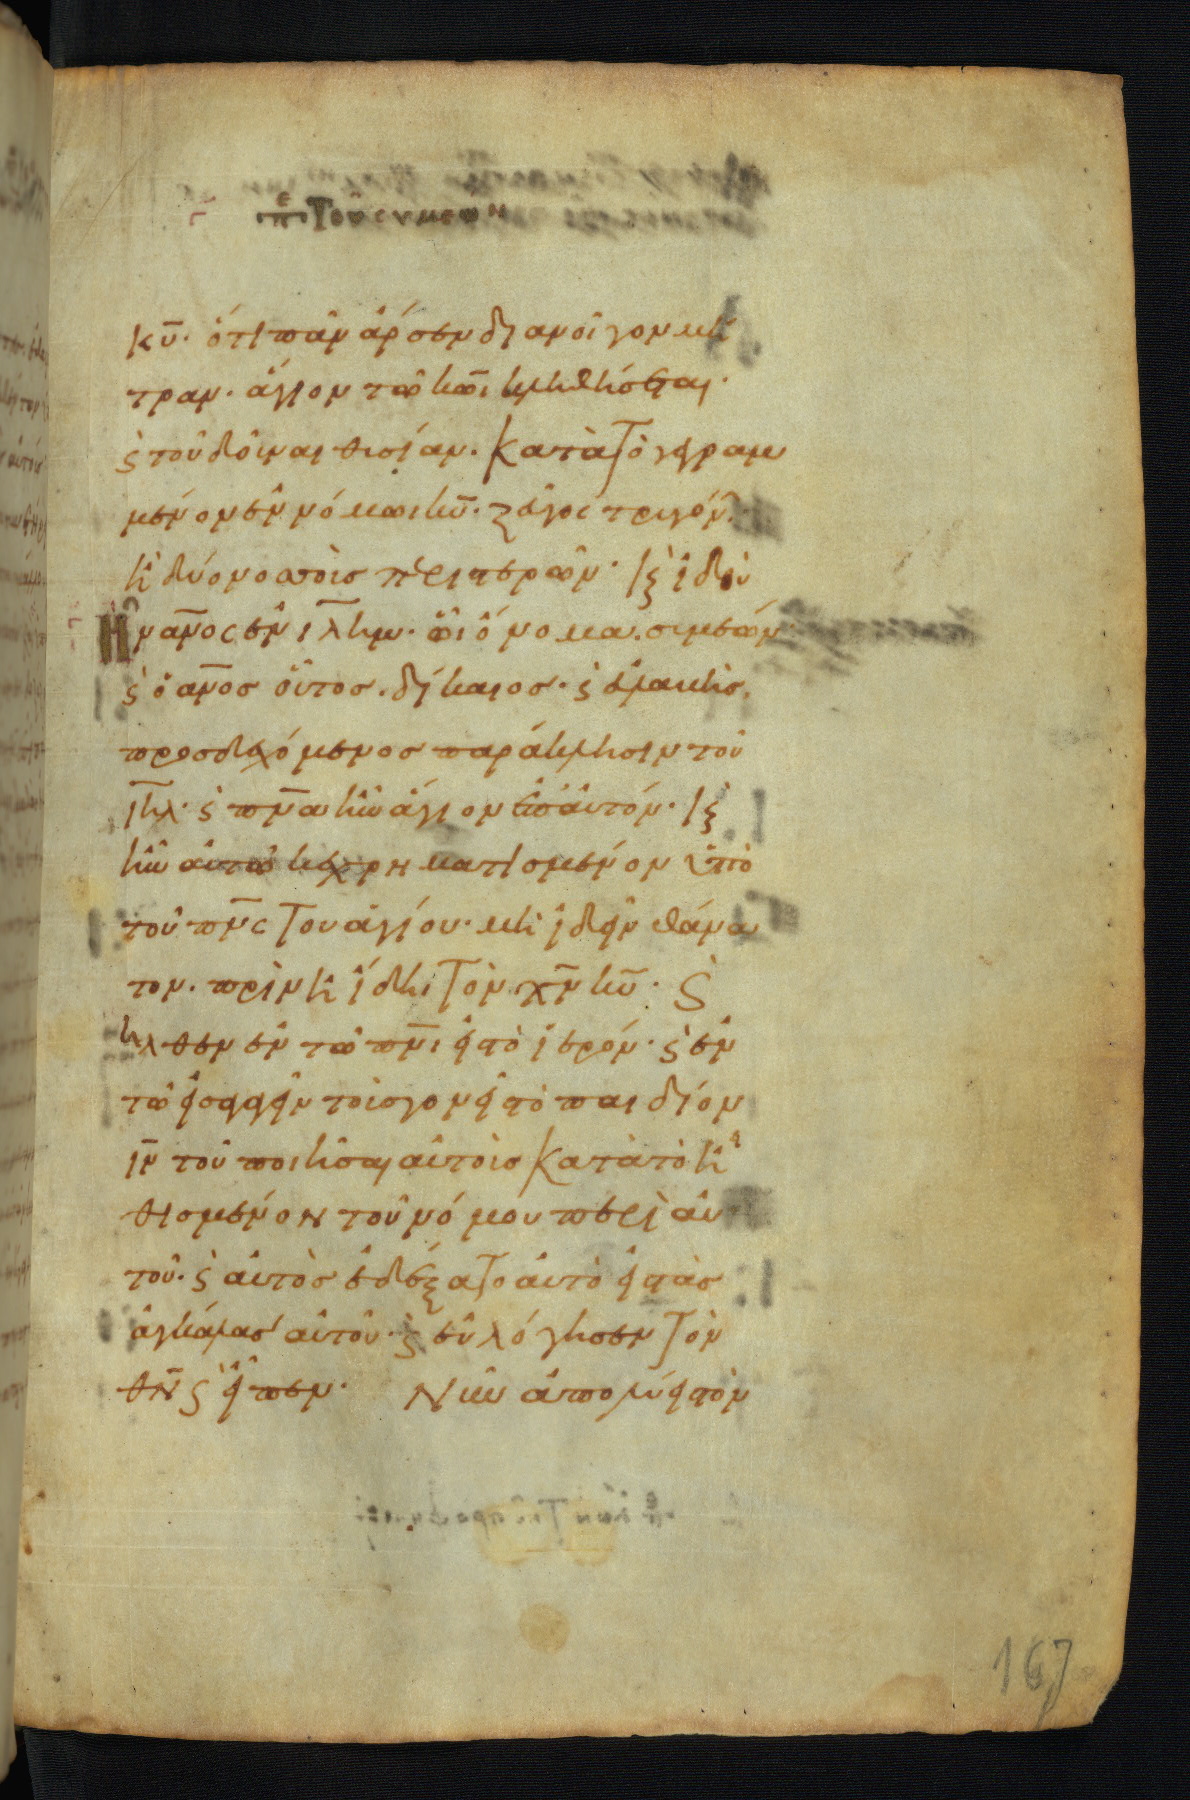 Γ περὶ Τοῦ συμεων
κυ̅· ὅτι πᾶν ἄρσεν διανοῖγον μή
τραν· ἅγιον τῶ κω̅ι κληθήσεται·
ϛ τοῦ δοῦναι θυσίαν. κατὰ τὸ γεγραμ
μένον ἐν νόμωι κυ̅· ζεῦγος τρυγόν
ἢ δύο νοσσοὺς περιστερῶν· Κ(αὶ) ἰδοὺ
Ἦν αν̅ος ἐν ιλ̅ημ· ὧι ὄνομα. συμεών·
ϛ ὁ αν̅ος οὗτος. δίκαιος· ϛ εὐλαβὴς.
προσδεχόμενος παράκλησιν τοῦ
ιη̅λ· ϛ πν̅α ἦν ἅγιον ἐπ' αὐτόν· Κ(αὶ)
ἦν αὐτῶ κεχρηματισμένον ὑπὸ
τοῦ πν̅ς τοῦ ἁγίου· μὴ ἰδεῖν θάνα
τον. πρὶν ἢ ἴδηι τὸν χν̅ κυ̅· ϛ
ἦλθεν ἐν τῶ πν̅ι εἰς τὸ ἱερόν· ϛ ἐν
τῶ εἰσαγαγεῖν τοὺς γονεῖς τὸ παιδίον
ιν̅ τοῦ ποιῆσαι αὐτοὺς κατὰ τὸ εἰ
θισμένον τοῦ νόμου περὶ αὐ
τοῦ· ϛ αὐτὸς ἐδέξατο αὐτὸ εἰς τὰς
ἀγκάλας αὐτοῦ· ϛ εὐλόγησεν τὸν
θν̅ ϛ εἶπεν· Νῦν ἀπολύεις τὸν
167